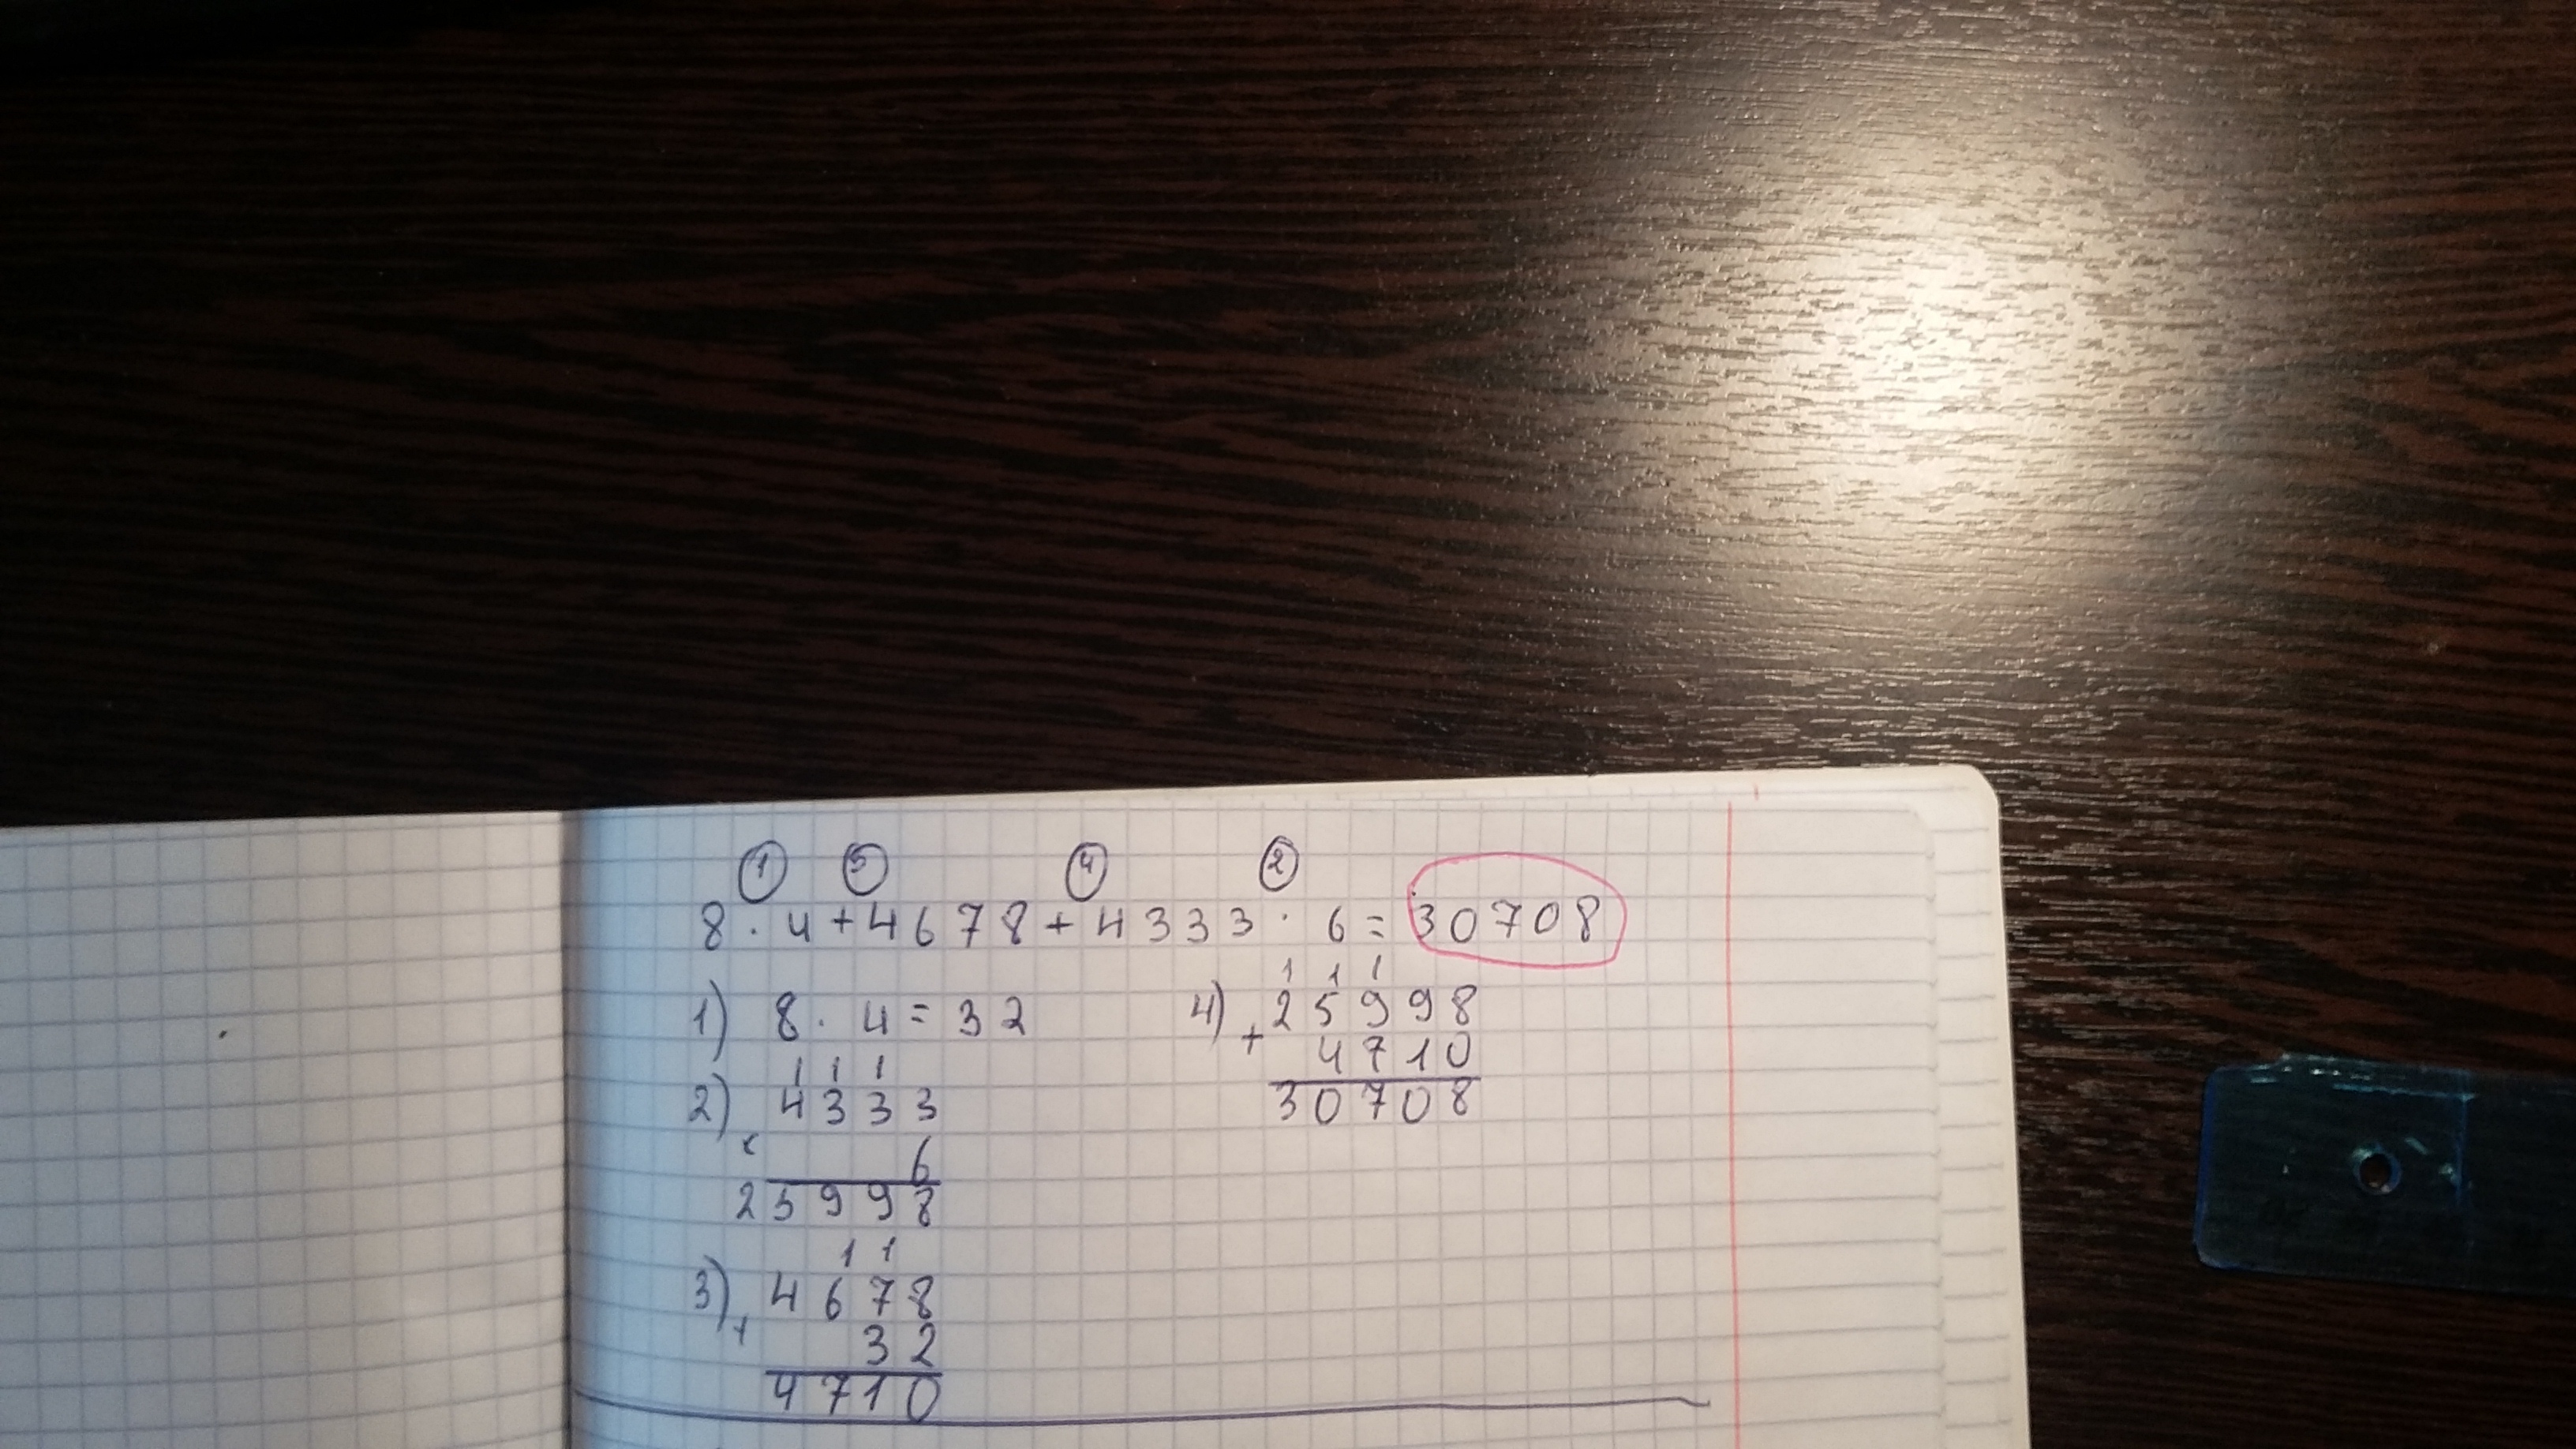 1 3 4 2
8 · 4 + 4678 + 4333 · 6 = 30708
1) 8 · 4 = 32
1 1 1
2) 4333
×
6
25998
1 1
3) 4678
+
32
4710
1 1 1
4) 25998
+
4710
30708